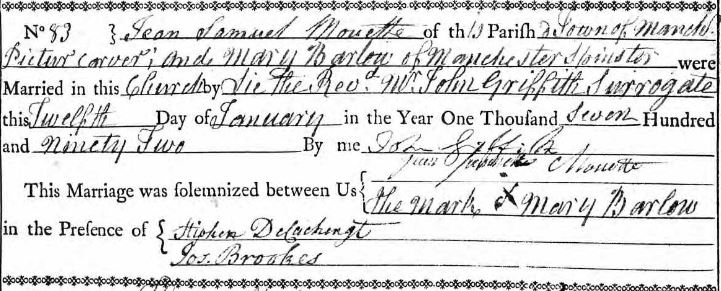 No 83 } Jean Samuel Mouette of this Parish & Town of Manchr
Pictur carver; and Mary Barlow of Manchester Spinster were
Married in this Church by Lic the Revd Mr John Griffith Surrogate
this Twelfth Day of January in the Year One Thousand Seven Hundred
and Ninety Two By me John Griffith
This Marriage was solemnized between Us { Jean Mouette
The Mark X Mary Barlow
in the Presence of { Stephen
Jos. Brookes